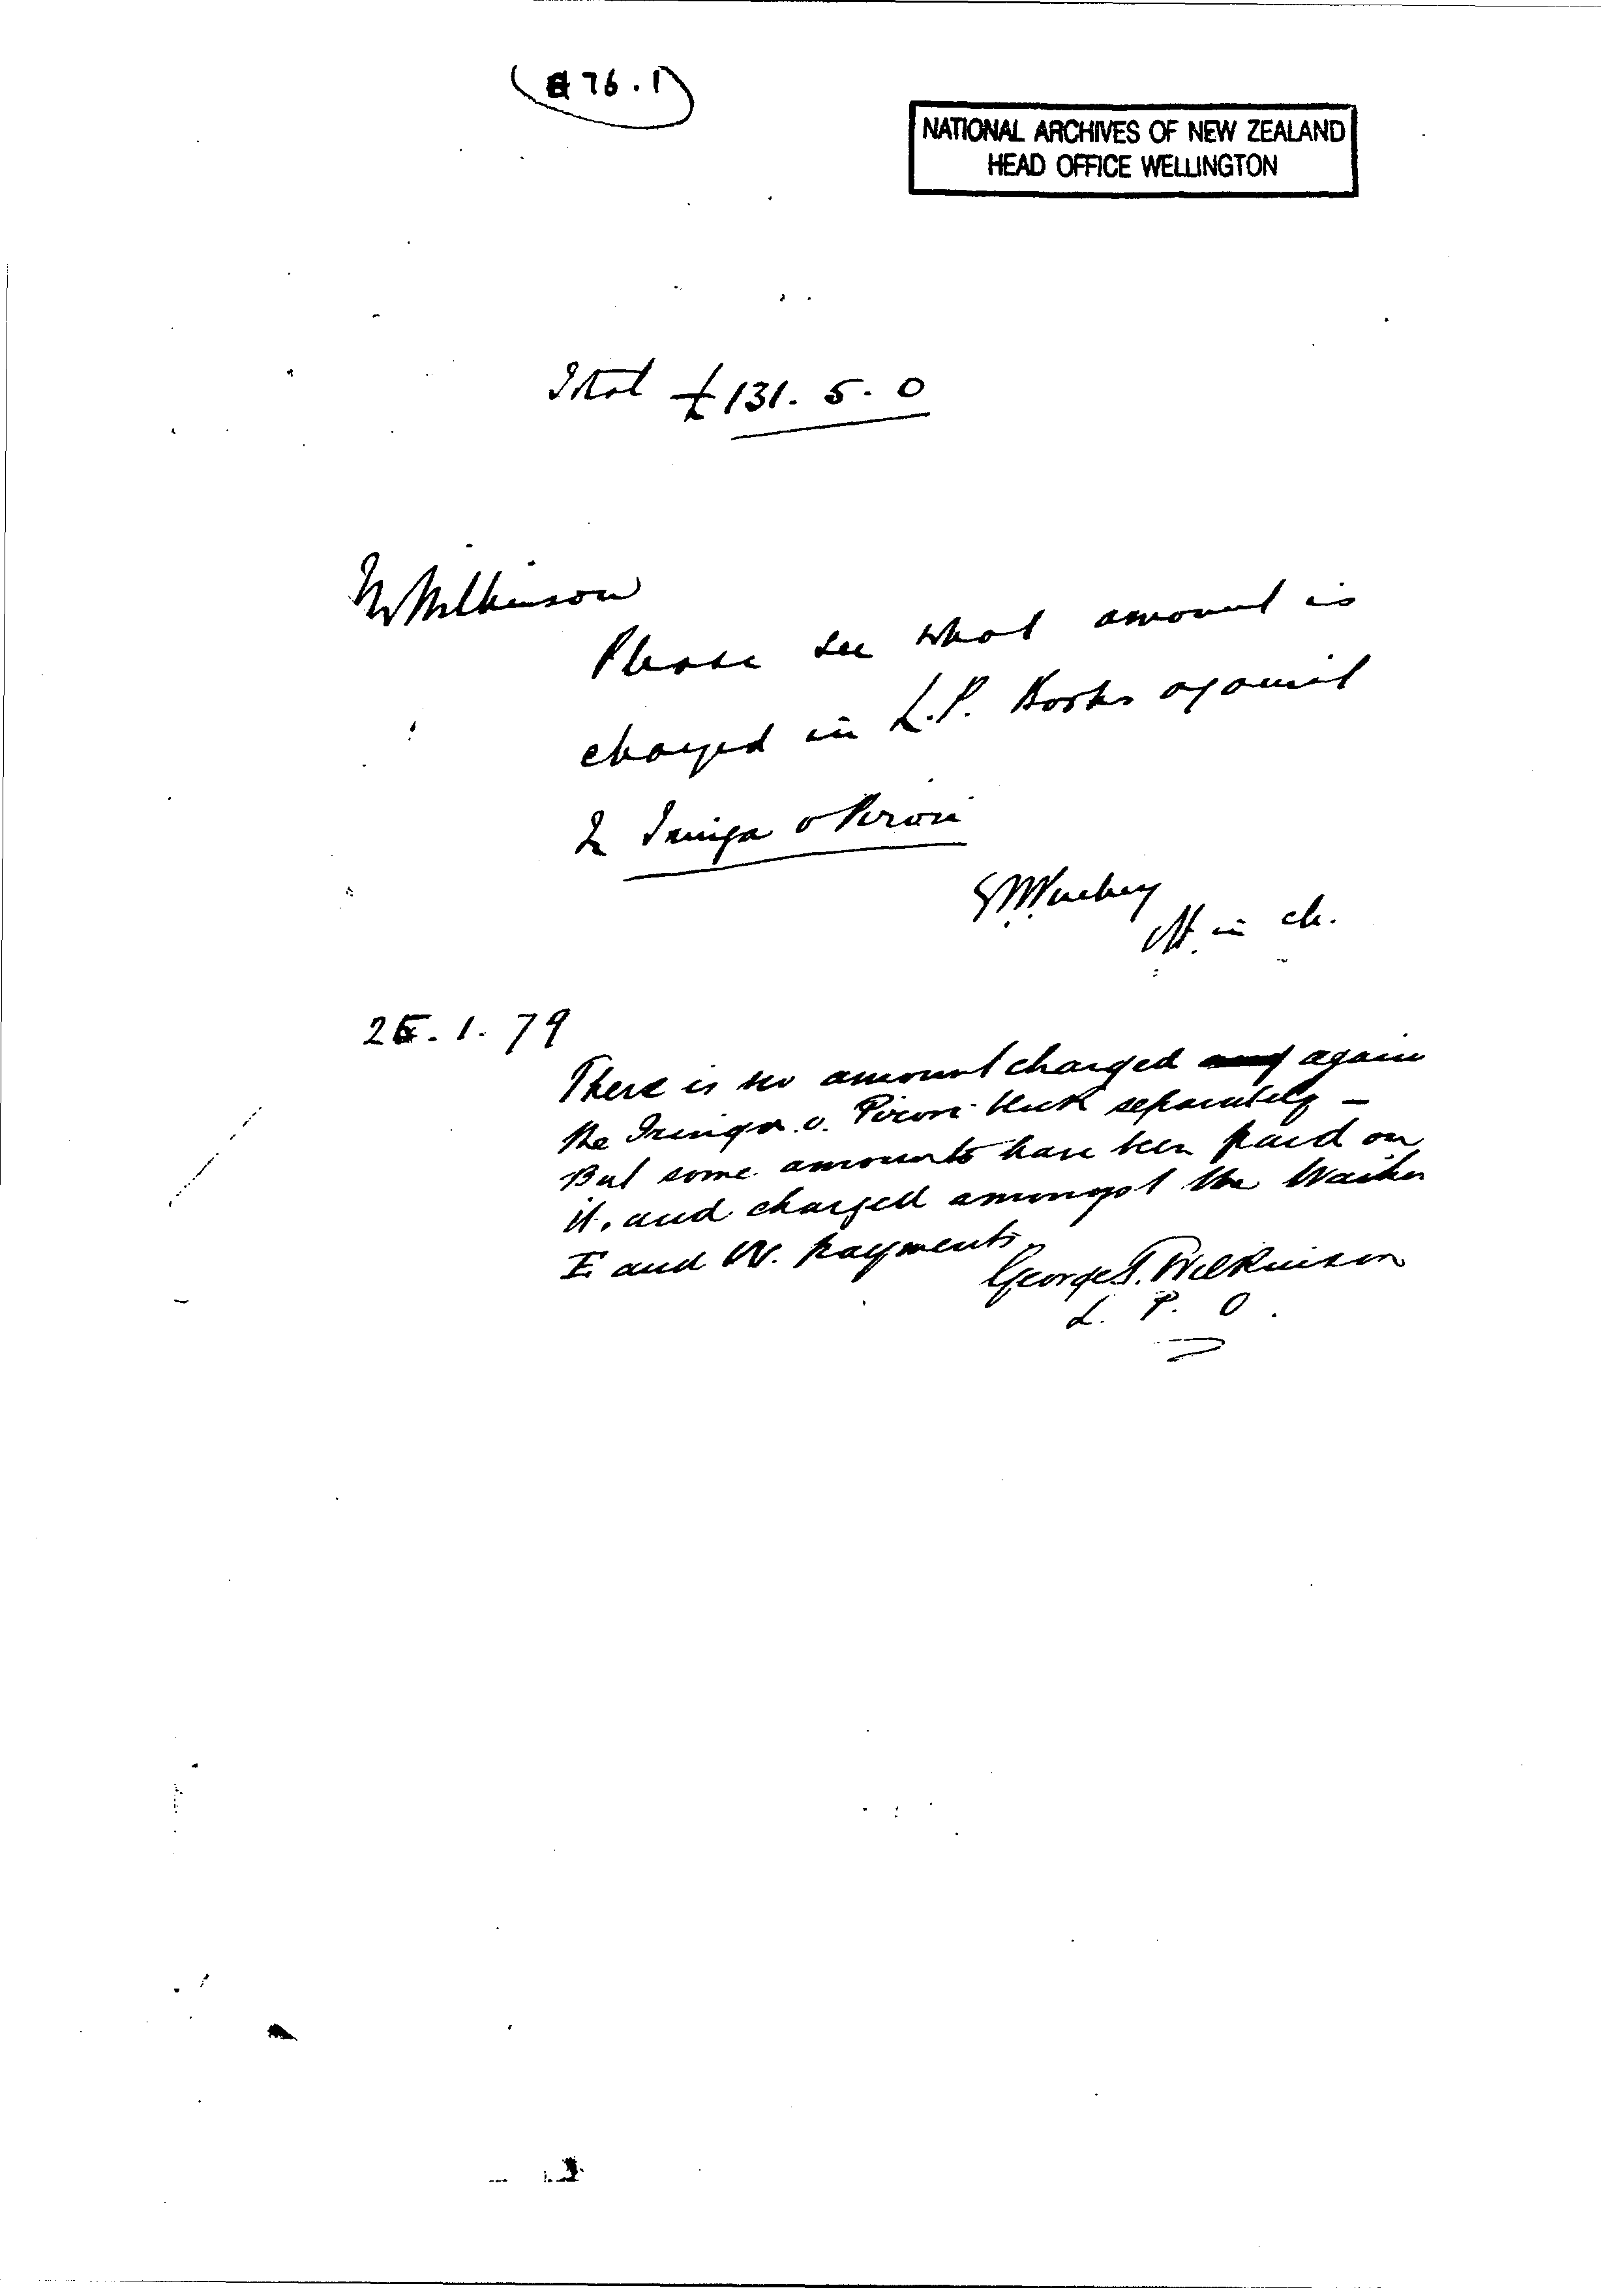 76.1
NATIONAL ARCHIVES OF NEW ZEALAND
HEAD OFFICE WELLINGTON
Total £131. 5. 0
Mr Wilkinson
Please see what amount is
charged in L.P. Books against
Te Iringa o Pirori
in ch.
1. 79
There is no amount charged again
the Iringa o Pirori block separately —
But some amounts have been paid on
it, and charged amongst the
E and W. payments.
George T. Wilkinson
L. P. O.